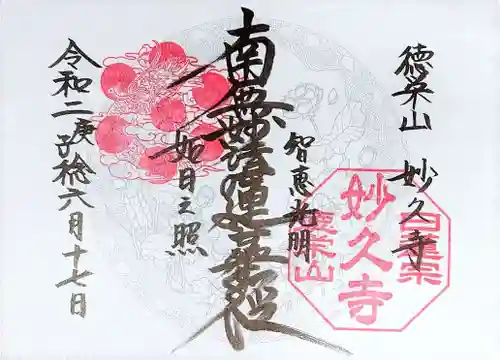 徳栄山 妙久寺
智恵光明
南無妙法蓮華経
如日之照
令和二庚子稔六月十七日
日蓮宗
妙久寺
徳栄山